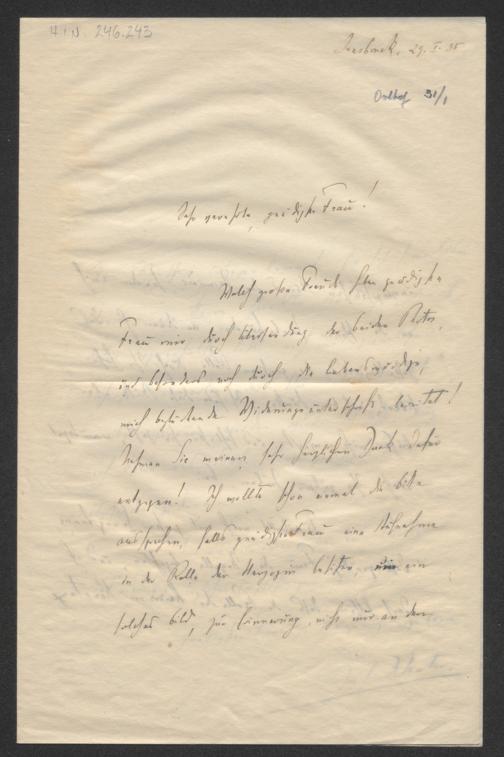 H.I.N. 246.243
Innsbruck, 29. I. 35
31/I
Sehr verehrte, gnädigste Frau!
Welch große Freude haben gnädigste
Frau mir durch Übersendung der beiden
und besonders noch durch die liebenswürdige,
mich Widmungsunterschrift bereitet!
Nehmen Sie meinen sehr herzlichen Dank dafür
entgegen! Ich wollte schon einmal die Bitte
aussprechen, falls gnädigste Frau eine Aufnahme
in der Rolle der Herzogin besitzen, um ein
solches Bild, zur Erinnerung nicht nur an den